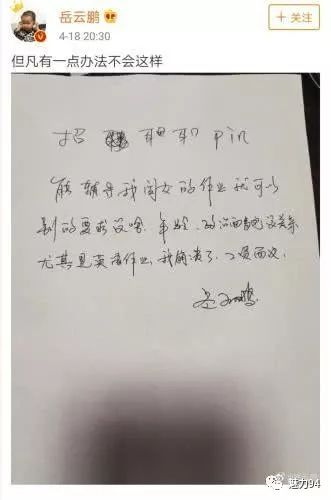 岳云鹏
4-18 20:30
+关注
但凡有一点办法不会这样
招 耳 职 Pin
能辅导我闺女的作业就可以
别的要求没啥.年龄.政治面貌没关系
尤其是英语作业,我崩溃了.工资面议.
岳云鹏
魅力94